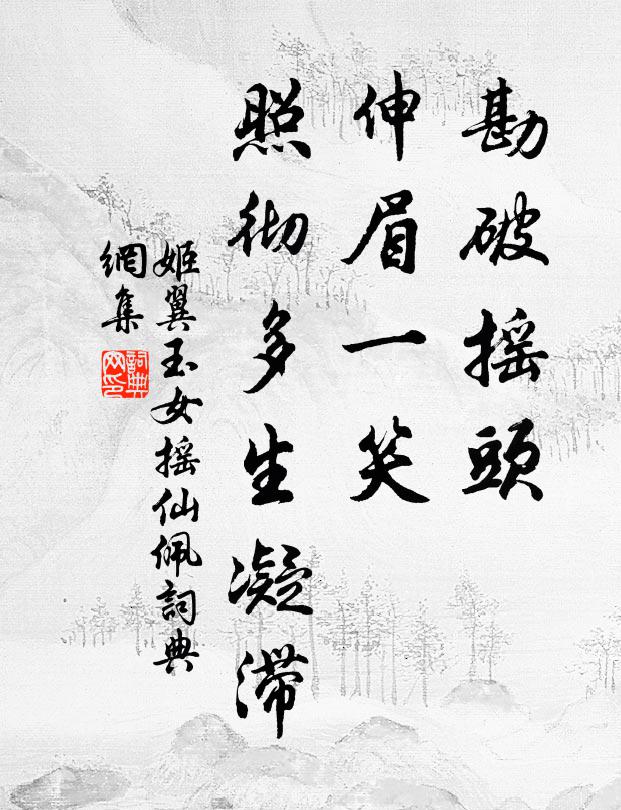 勘破摇頭
伸眉一笑
照彻多生凝滞
姬翼玉女摇仙佩詞典
網集
詞典网印